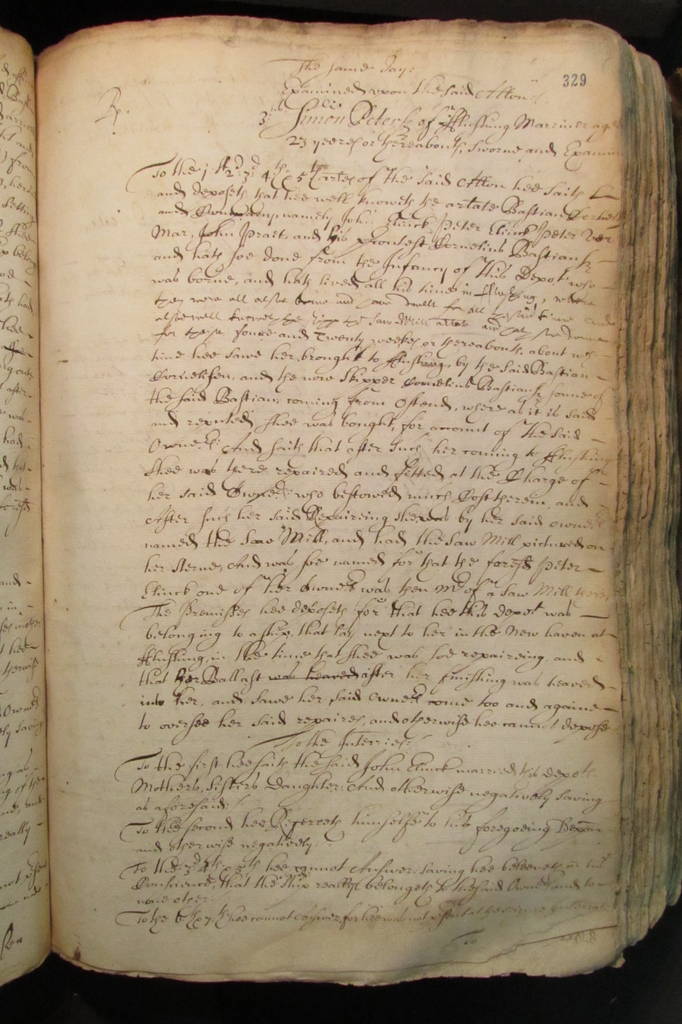 The same day:
329
Examined upon the said Allon
3
Simon Peters of Flushing Marriner aged
23 yeeres or thereabouts, sworne and Examined
To the 1st 2d 3d 4th and 5th articles of the said Allon hee saith
and deposeth that hee well knoweth the arlate Bastian
and namely John Clinck Peter Clinck Peter
Mar, John Praet and his Cornelius Bastians
and hath soe done from the Infancy of this depot who
was borne, and hath lived all his time in Flushing, where
they were all alsoe borne and dwell for all
alsoe well knoweth the shipp the Saw Mill
for these foure and Twenty weekes or thereabouts, about
time hee sawe her brought to Flushing by the said Bastian
Cornelisen, and the now skipper Cornelius Bastians sonne of
the said Bastian, coming from Ostend, where as it is said
and reputed shee was bought, for account of the said
Owners And saith that after such her coming to Flushing
shee was there repaired and fitted at the Charge of
her said Owners who bestowed much Cost therein, and
After such her said Repairing shee was by her said owners
named the Saw Mill, and had the Saw Mill pictured on
her Sterne, And was soe named for that the foresd Peter
Clinck one of her Owners was then Mr of a Saw Mill
The Premisses hee deposeth for that hee this depot was
belonging to a ship, that lay next to her in the New haven at
Flushing, in the time that shee was soe repaireing, and
that her Ballast was heaved after her finishing was heaved
into her, and sawe her said Owners come too and againe
to oversee her said repaires, and otherwise hee cannot depose
To the Interries:
To the first hee saith the said John Clinck married this depots
Mothers, Sisters Daughter: And otherwise negatively saving
as aforesaid:
To the second hee Referreth himselfe to his foregoeing Depon
and otherwise negatively:
To the 3d 4th and 5th hee cannot Answer, saving hee beleeveth in his
Conscience, that the ship really belongeth to the said Owners and to
none other:
To the 6 and 7th hee cannot answer for hee was not
To